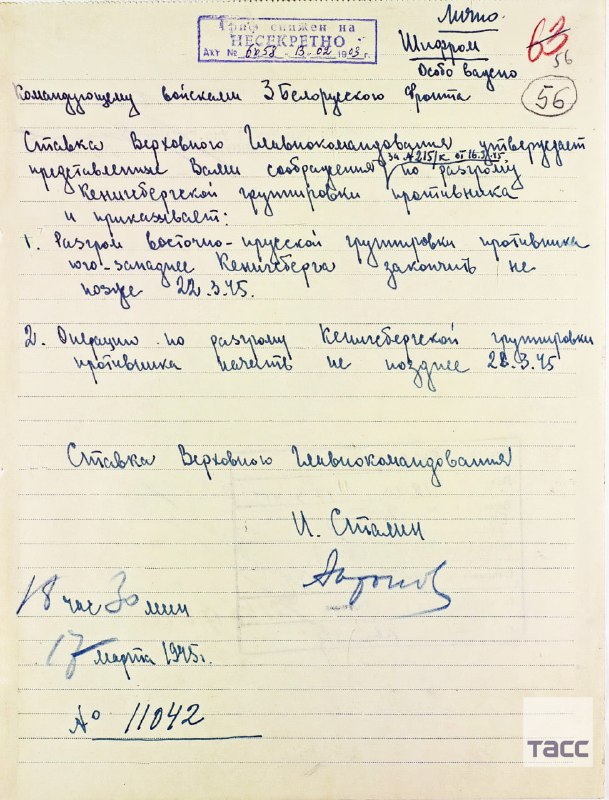 Лично.
Гриф снижен на
НЕСЕКРЕТНО
Акт №
Шифром
Особо важно
63
56
56
Командующему войсками 3 Белорусского Фронта
Ставка Верховного Главнокомандования утверждает
за № 215/к от 16.3.45,
представленные Вами соображения по разгрому
Кенигсбергской группировки противника
и приказывает:
1. Разгром восточно-прусской группировки противника
юго-западнее Кенигсберга закончить не
позже 22.3.45.
2. Операцию по разгрому Кенигсбергской группировки
противника начать не позднее 28.3.45
Ставка Верховного Главнокомандования
И. Сталин
Антонов
18 час 30 мин
17 марта 1945г.
№ 11042
ТАСС